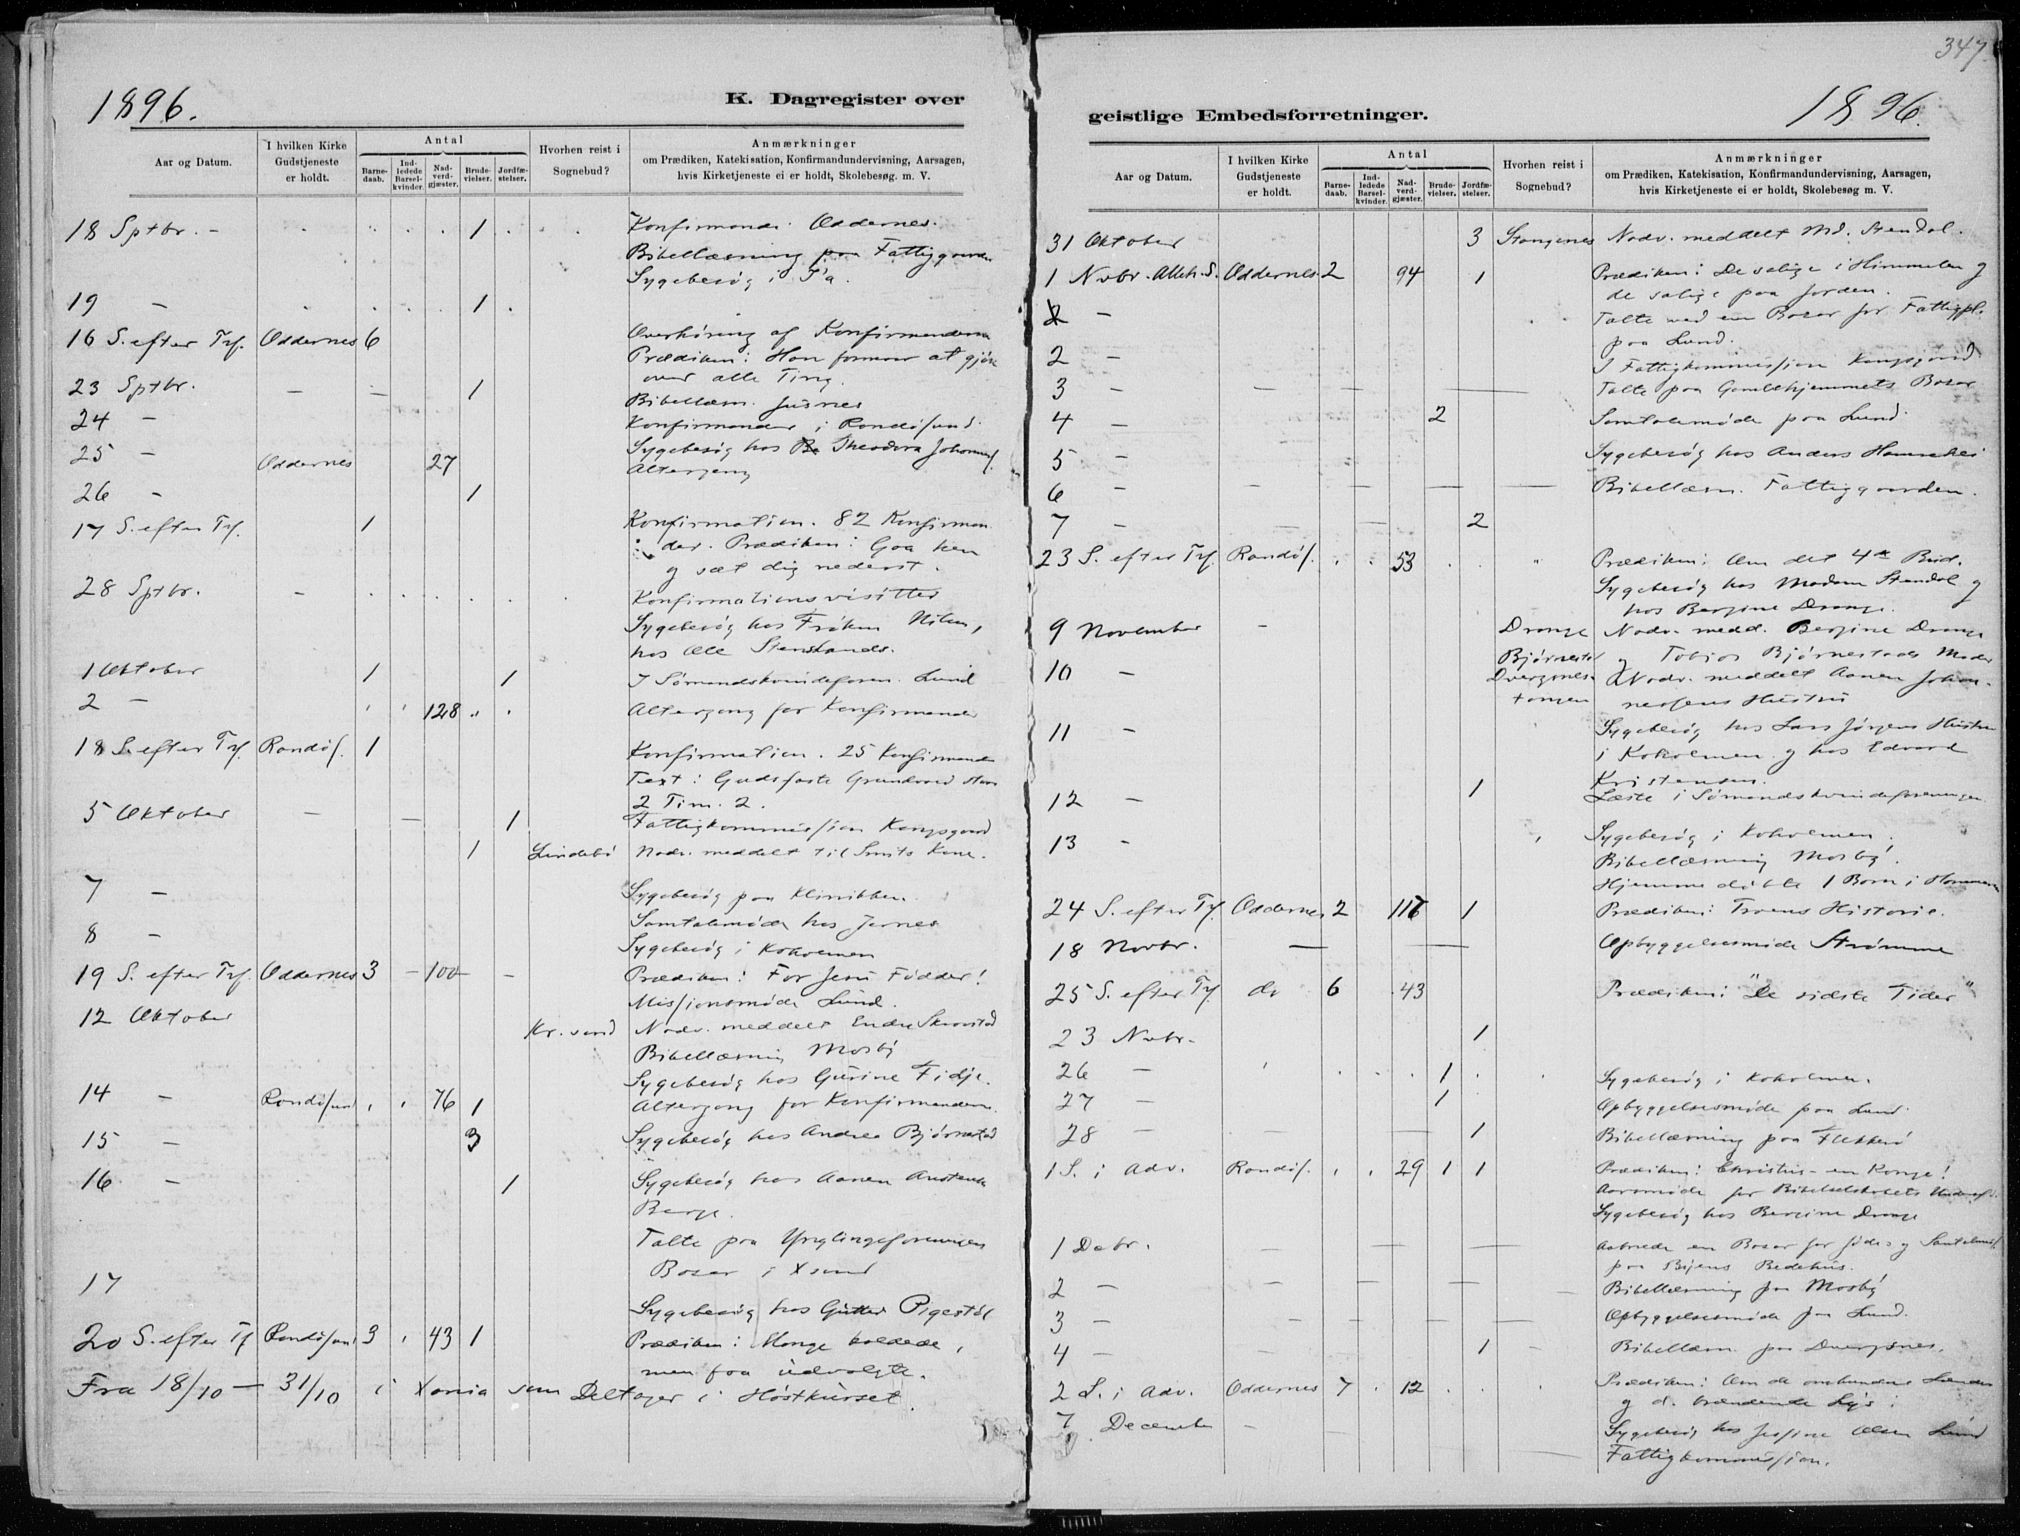 1896.
K. Dagregister over
Aar og Datum. I hvilken Kirke Gudstjeneste er holdt. Antal Barnedaab. Indledede Barselkvinder. Nadverdgjæster. Brudevielser. Jordfæstelser. Hvorhen reist i Sognebud? Anmærkninger om Prædiken, Katekisation, Konfirmandundervisning, Aarsagen, hvis Kirketjeneste ei er holdt, Skolebesøg. m. V.
18 Sptbr. - 1 Konfirmander Oddernes.
Bibellæsning paa Fattiggaarden
Sygebesøg i
19 — 1
16 S. efter Trf. Oddernes 6 Overhøring af Konfirmanderne
Prædiken: Han formaar at gjøre
over alle Ting.
23 Sptbr. — — 1 Bibellæsn. Jusnes
24 — Konfirmander i Randøsund.
25 — Sygebesøg hos Theodora Johannes.
Oddernes 27 Altergang
26 — 1
17 S. efter Trf. 1 Konfirmation. 82 Konfirman
der. Prædiken: Gaa hen
og sæt dig nederst.
28 Sptbr. — Konfirmationsvisitter
Sygebesøg hos Frøken Nilsen,
hos Ole Stenslands.
1 Oktober 1 1 I Sømandskvindeforen. Lund
2 — 128 Altergang for Konfirmander
18 S. efter Trf. Randøs. 1 Konfirmation. 25 Konfirmander
Text: Guds faste Grundvold staar
2 Tim. 2.
5 Oktober — — 1 Fattigkommission Kongsgaard
1 Lindebø Nadv. meddelt til Smits Kone.
7 — Sygebesøg paa Klinikken.
8 — Samtalemøde hos Jernes
Sygebesøg i Kokolmen
19 S. efter Trf. Oddernes 3 — 100 — Prædiken: For Jesu Fødder!
Missjonsmøde Lund.
12 Oktober Kr. sand Nadv. meddelt Endre Skravstad
Bibellæsning Mosby
Sygebesøg hos Gurine Fidje.
14 — Randøsund 76 1 Altergang for Konfirmanderne.
15 — 3 Sygebesøg hos Andrea Bjørnestad
16 — 1 Sygebesøg hos Aanen
Berge.
Talte paa Ynglingeforeningens
Basar i Xsand
17
Sygebesøg hos Pigestøl
20 S. efter Tf Randøsund 3 43 1 Prædiken: Mange kaldede,
men faa udvalgte.
Fra 18/10 — 31/10 i Xania som Deltager i Høstkurset.
347.
geistlige Embedsforretninger.
1896.
Aar og Datum. I hvilken Kirke Gudstjeneste er holdt. Antal Barnedaab. Indledede Barselkvinder. Nadverdgjæster. Brudevielser. Jordfæstelser. Hvorhen reist i Sognebud? Anmærkninger om Prædiken, Katekisation, Konfirmandundervisning, Aarsagen, hvis Kirketjeneste ei er holdt, Skolebesøg. m. V.
31 Oktober 3 Stangenes Nadv. meddelt Md. Stendal.
1 Nvbr. Alleh. S. Oddernes. 2 94 1 Prædiken: De salige i Himmelen og
de salige paa Jorden.
— Talte ved en Basar for Fattigpl.
paa Lund.
2 — I Fattigkommission Kongsgaard
3 — — Talte paa Gamlehjemmets Basar
4 — 2 Samtalemøde paa Lund.
5 — Sygebesøg hos Anders
6 — — Bibellæsn. Fattiggaarden.
7 — 2
23 S. efter Trf. Randøs. 53 Prædiken: Om det 4de Bud.
Sygebesøg hos Madam Stendal og
hos Bergine Drange.
9 November — Drange Nadv. medd. Bergine Drange
Bjørnestad og Tobias Bjørnestads Moder
10 — Dvergsnestangen Nadv. meddelt Aanen Johan-
nesens Hustru
11 — Sygebesøg hos Lars Jørgens Hustru
i Kokolmen og hos Edvard
Kristensen.
12 — 1 Læste i Sømandskvindeforeningen
13 — Sygebesøg i Kokolmen.
Bibellæsning Mosby.
Hjemmedøbte 1 Barn i
24 S. efter Tf. Oddernes 2 116 1 Prædiken: Troens Historie.
18 Novbr. — Opbyggelsesmøde Strømme
25 S. efter Tf. do 6 43 Prædiken: "De sidste Tider"
23 Nvbr. 1
26 — 1 Sygebesøg i Kokolmen.
27 — 1 Opbyggelsesmøde paa Lund.
28 — — 1 Bibellæsning paa Flekkerø
1 S. i Adv. Randøs. 29 1 1 Prædiken: Christus - en Konge!
Aarsmøde for Bibelselskabets
Sygebesøg hos Bergine Drange
1 Dcbr. — en Basar for Jøde- og Santalmis.
paa Byens Bedehus.
2 — — Bibellæsning paa Mosby
3 — — Opbyggelsesmøde paa Lund.
4 — 1 Bibellæsn. paa Dvergsnes.
2 S. i Adv. Oddernes 7 12 Prædiken: Om de ombundne Lænder
og d. brændende Lys.
7 December — Sygebesøg hos Josefine Olsen Lund
Fattigkommission.